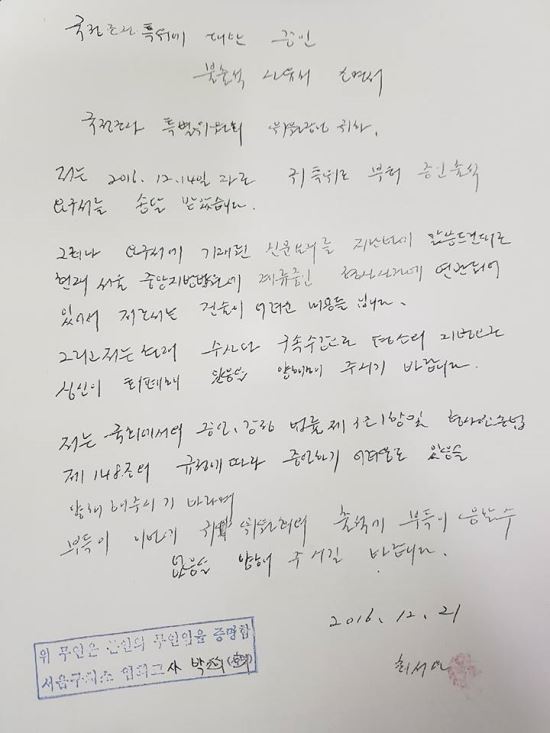 국정조사 특위에 대한 증인
불출석 사유서 소명서
국정조사 특별위원회 위원장님 귀하.
저는 2016. 12. 14일 자로 귀 특위로 부터 증인출석
요구서를 송달 받았습니다.
그러나 요구서에 기재된 신문요지를
현재 서울 중앙지방법원에 계류중인 형사사건에 연관되어
있어서 저로서는 진술이 어려운 내용들 입니다.
그리고 저는 현재 수사와 구속수감으로 평소의 지병으로
심신이 피폐해 있음을 양해해 주시기 바랍니다.
저는 국회에서의 증언, 감정 법률 제3조 1항 및 형사소송법
제148조의 규정에 따라 증언하기 어려운 있음을
양해 하여주시기 바라며
부득이 이번 귀 위원회의 출석에 부득이 응할 수
없음을 양해 주시길 바랍니다.
2016. 12. 21
최서원
위 무인은 본인의 무인임을 증명함
서울구치소 교사 박